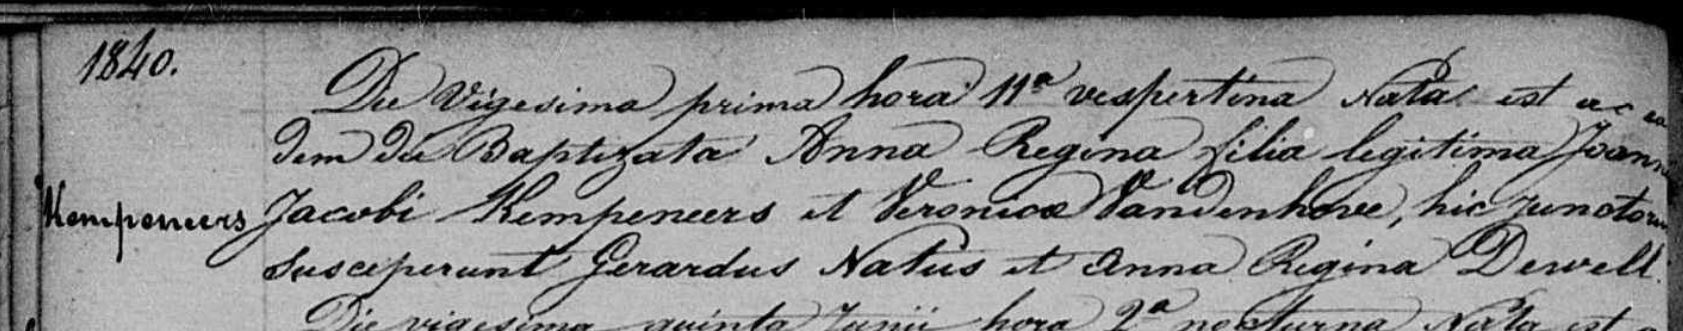 1840.
Die Vigesima prima hora 11a vespertina Nata est ac ea
dem die Baptizata Anna Regina filia legitima Joannis
Kempeneers Jacobi Kempeneers et Veronicæ Vandenhove, hic junctorum
Susceperunt Gerardus Natus et Anna Regina Dewell.
Die vigesima quinta Junii hora 2a nocturna Nata est